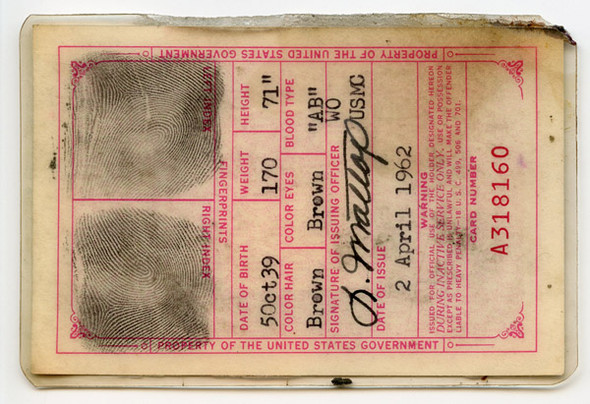 PROPERTY OF THE UNITED STATES GOVERNMENT
PROPERTY OF THE UNITED STATES GOVERNMENT
RIGHT INDEX
LEFT INDEX
FINGERPRINTS
DATE OF BIRTH WEIGHT HEIGHT
5Oct39 170 71"
COLOR HAIR COLOR EYES BLOOD TYPE
Brown Brown "AB"
SIGNATURE OF ISSUING OFFICER WO
USMC
DATE OF ISSUE
2 April 1962
WARNING
ISSUED FOR OFFICIAL USE OF THE HOLDER DESIGNATED HEREON
DURING INACTIVE SERVICE ONLY. USE OR POSSESSION
EXCEPT AS PRESCRIBED IS UNLAWFUL AND WILL MAKE THE OFFENDER
LIABLE TO HEAVY PENALTY-18 U. S. C. 499, 506 AND 701.
CARD NUMBER
A318160